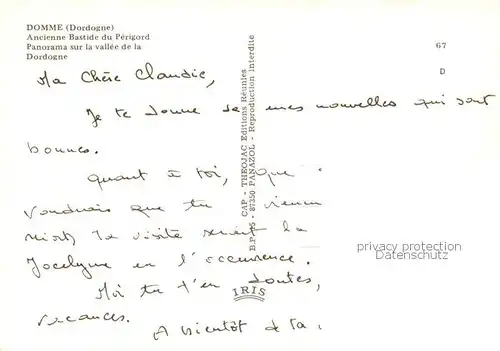 DOMME (Dordogne)
Ancienne Bastide du Périgord
Panorama sur la vallée de la
Dordogne
67
D
Ma Chère Claudie,
Je te donne de mes nouvelles qui sont
bonnes.
Quant à toi, que
voudrais que tu
la visite
Jocelyne en l'occurrence.
Toi tu t'en doutes,
vacances.
A bientôt de ta
CAP - THEOJAC Editions Réunies
B.P. - 87350 PANAZOL - Reproduction Interdite
IRIS
privacy protection
Datenschutz